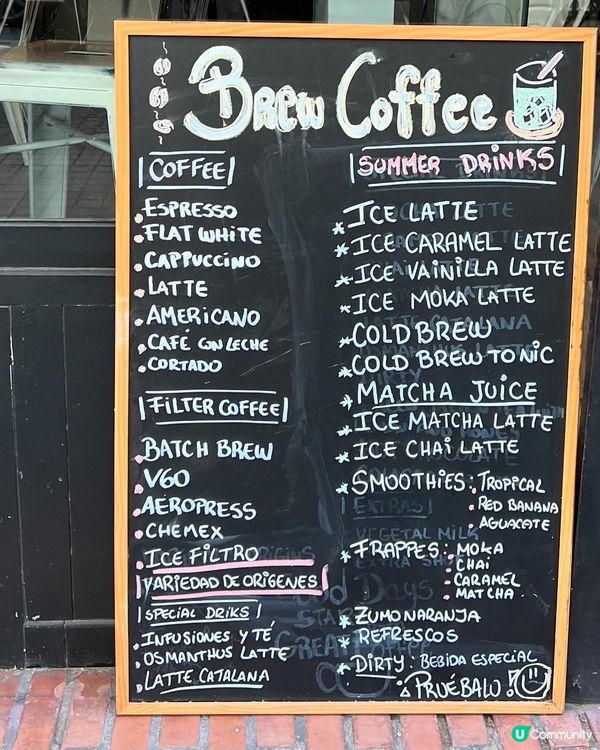 Brew Coffee
COFFEE
ESPRESSO
FLAT WHITE
CAPPUCCINO
LATTE
AMERICANO
CAFÉ CON LECHE
CORTADO
FILTER COFFEE
BATCH BREW
V60
AEROPRESS
CHEMEX
ICE FILTRO
VARIEDAD DE ORIGENES
SPECIAL DRIKS
INFUSIONES Y TÉ
OSMANTHUS LATTE
LATTE CATALANA
SUMMER DRINKS
* ICE LATTE
* ICE CARAMEL LATTE
* ICE VAINILLA LATTE
* ICE MOKA LATTE
* COLD BREW
* COLD BREW TONIC
* MATCHA JUICE
* ICE MATCHA LATTE
* ICE CHAI LATTE
* SMOOTHIES: TROPICAL
RED BANANA
AGUACATE
* FRAPPES: MOKA
CHAI
CARAMEL
MATCHA
* ZUMO NARANJA
* REFRESCOS
* DIRTY: BEBIDA ESPECIAL
¡PRUÉBALO!
EXTRAS
VEGETAL MILK
U Community